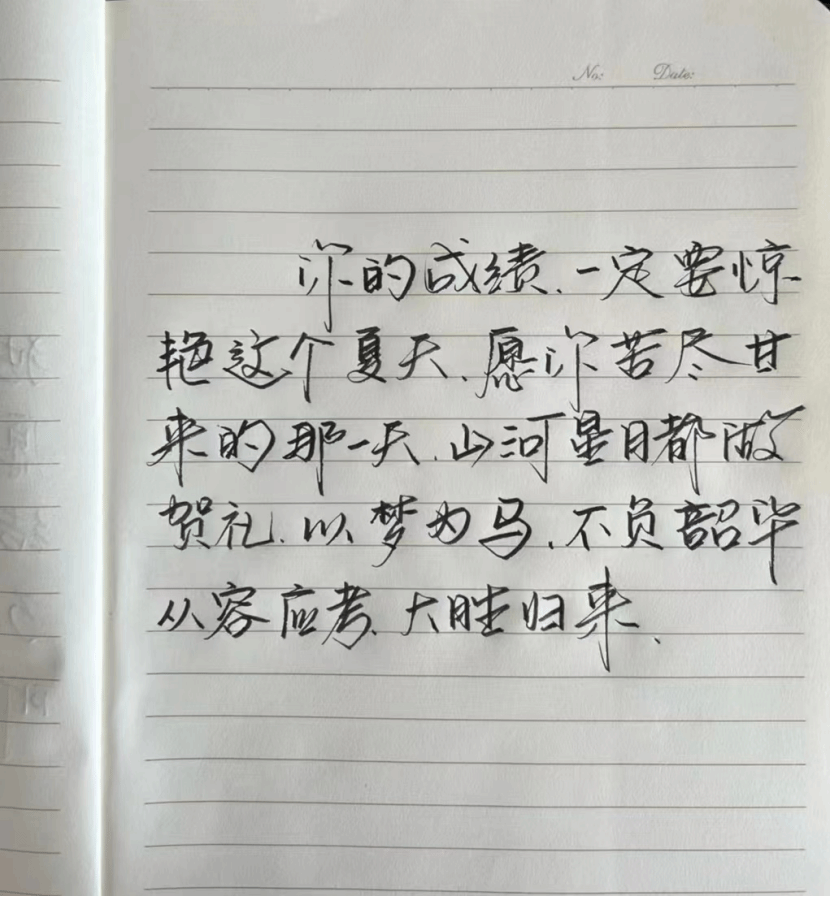 No: Date:
你的成绩、一定要惊
艳这个夏天、愿你苦尽甘
来的那一天、山河星月都做
贺礼、以梦为马、不负韶华
从容应考、大胜归来、